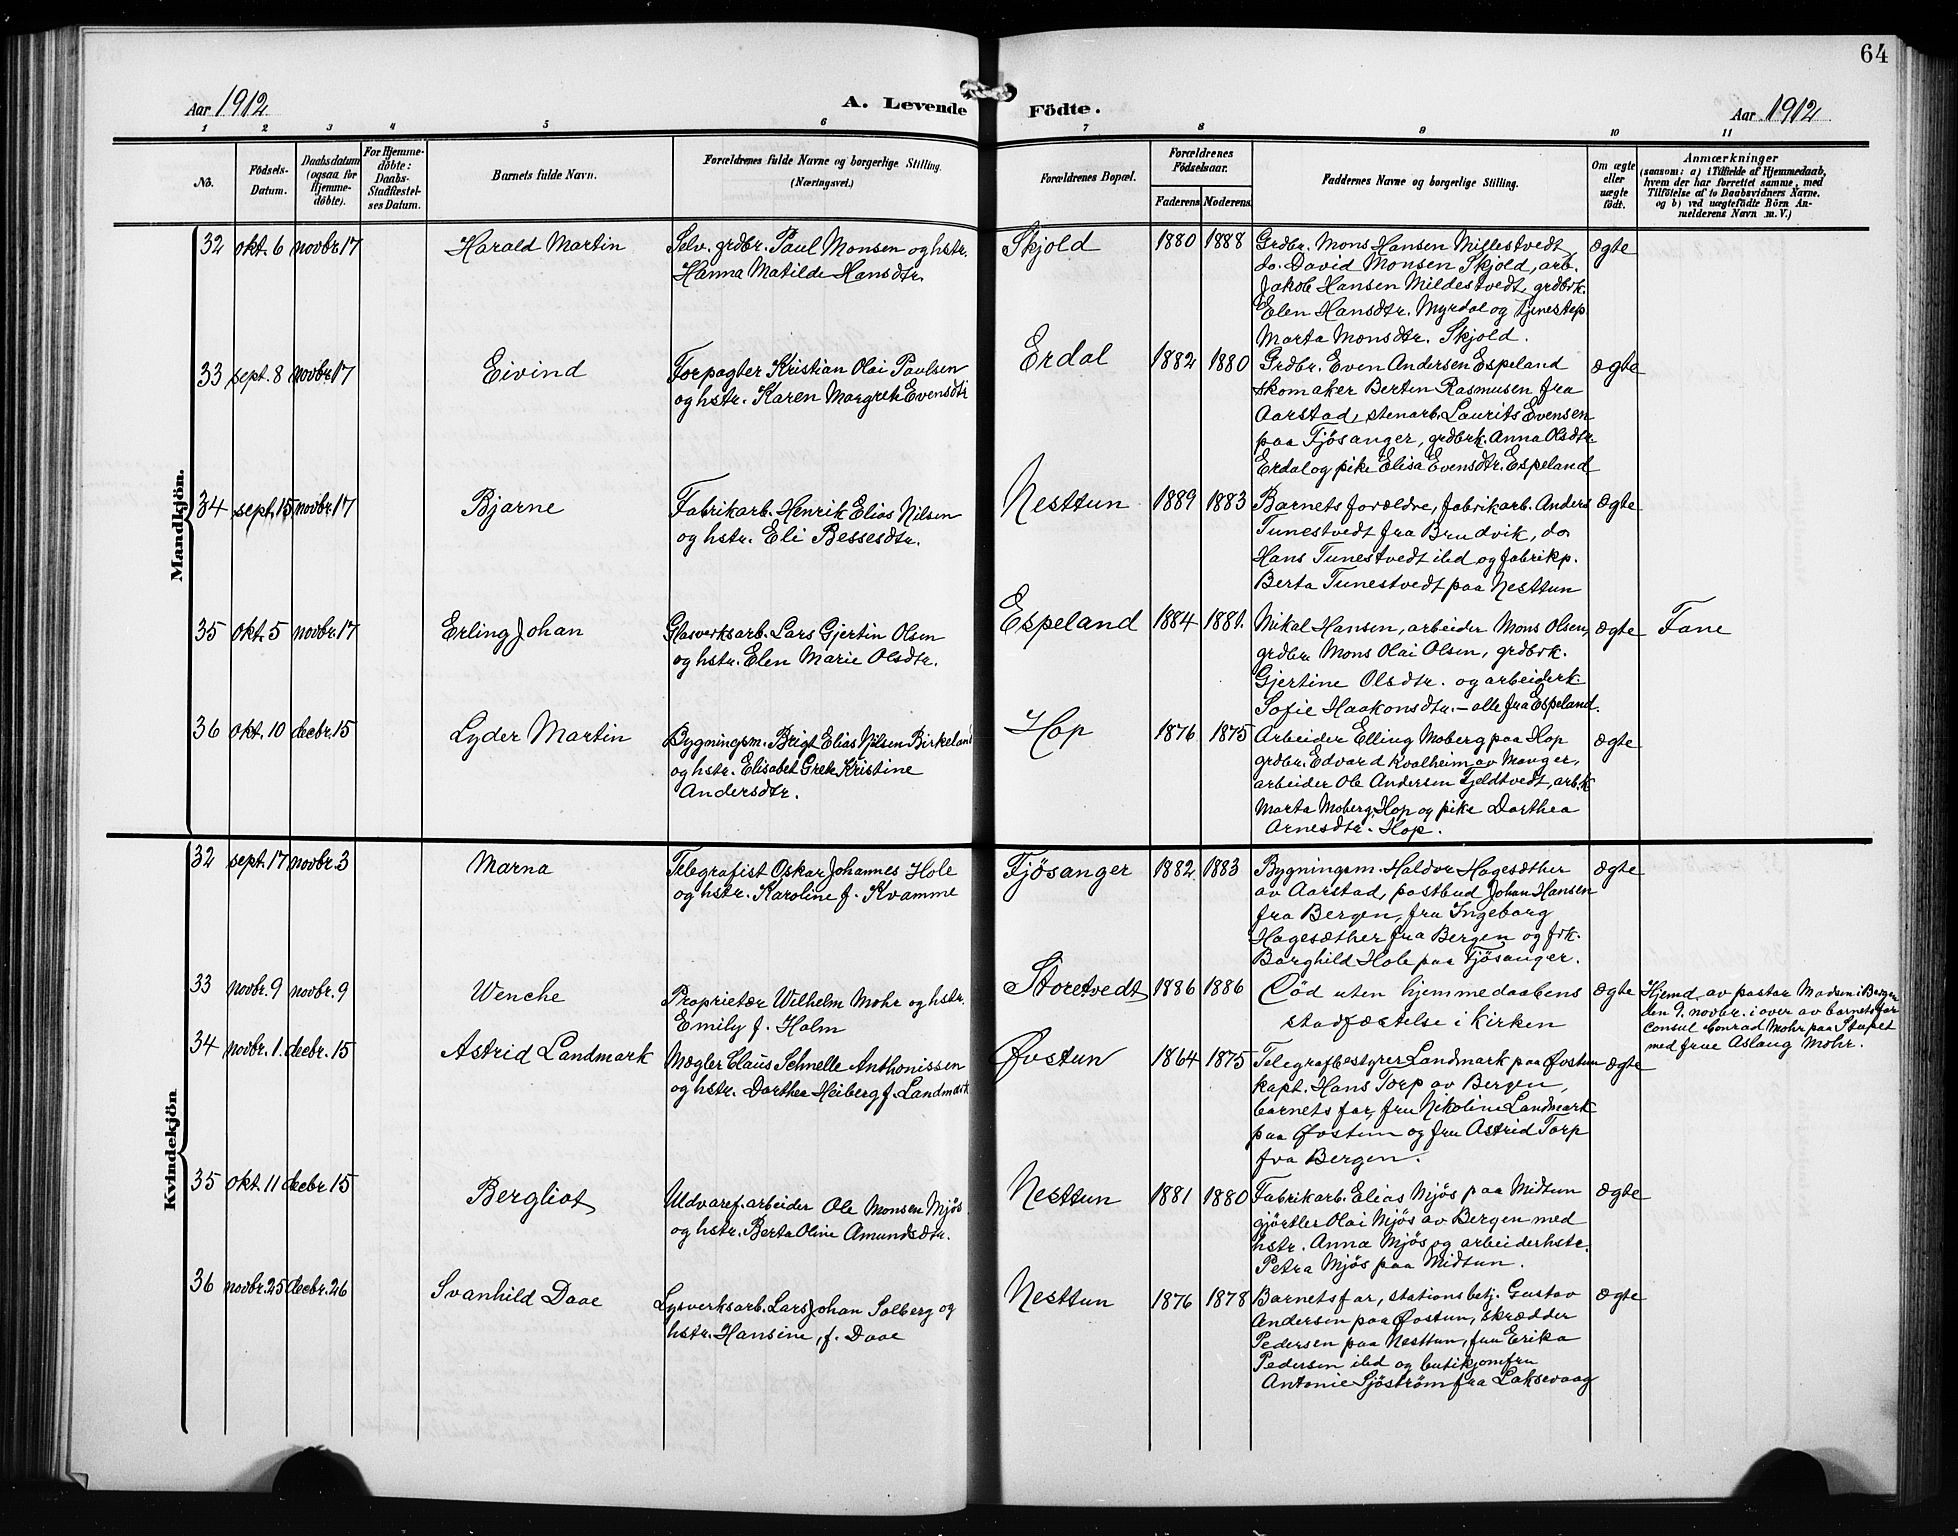 64
Aar 1912
A. Levende Födte.
Aar 1912
1 2 3 4 5 6 7 8 9 10 11
No.
Födsels-
Datum.
Daabsdatum
(ogsaa for
Hjemme-
döbte).
For Hjemme-
döbte:
Daabs-
Stadfæstel-
ses Datum.
Barnets fulde Navn.
Forældrenes fulde Navne og borgerlige Stilling.
(Næringsvei.)
Forældrenes Bopæl.
Forældrenes
Födselsaar.
Faderens Moderens
Faddernes Navne og borgerlige Stilling.
Om ægte
eller
uægte
födt.
Anmærkninger
(saasom: a) i Tilfælde af Hjemmedaab,
hvem der har forrettet samme, med
Tilföielse af to Daabsvidners Navne.
og b) ved uægtefödte Börn An-
melderens Navn m. V.)
Mandkjön.
32 okt. 6 novbr. 17 Harald Martin
Selv. grdbr. Paul Monsen og hstr.
Hanna Matilde Hansdtr.
Skjold 1880 1888
Grdbr. Mons Hansen Millestvedt
do. David Monsen Skjold, arb.
Jakob Hansen Mildestvedt, grdbrk.
Elen Hansdtr. Myrdal og tjenestep.
Marta Monsdtr. Skjold.
ægte
33 sept. 8 novbr. 17 Eivind
Forpagter Kristian Olai Paulsen
og hstr. Karen Margrete Evensdtr
Erdal 1882 1880
Grdbr. Even Andersen Espeland
skomaker Berten Rasmusen fra
Aarstad, stenarb. Laurits Evensen
paa Fjösanger, grdbrk. Anna Olsdtr.
Erdal og pike Elisa Evensdtr. Espeland
ægte
34 sept. 15 novbr. 17 Bjarne
Fabrikarb. Henrik Elias Nilsen
og hstr. Eli Bessesdtr.
Nesttun 1889 1883
Barnets forældre, fabrikarb. Anders
Tunestvedt fra Brudvik, do
Hans Tunestvedt ibd og fabrikp.
Berta Tunestvedt paa Nesttun
ægte
35 okt. 5 novbr. 17 Erling Johan
Glasverksarb. Lars Gjertin Olsen
og hstr. Elen Marie Olsdtr.
Espeland 1884 1881.
Mikal Hansen, arbeider Mons Olsen,
grdbr. Mons Olai Olsen, grdbrk.
Gjertine Olsdtr. og arbeiderk
Sofie Haakonsdtr. - alle fra Espeland.
ægte Fane
36 okt. 10 decbr. 15 Lyder Martin
Bygningsm. Brigt Elias Nilsen Birkeland
og hstr. Elisabet Grete Kristine
Andersdtr.
Hop 1876 1875
Arbeider Elling Moberg paa Hop
grdbr. Edvard Kvalheim av Manger,
arbeider Ole Andersen Fjeldtvedt, arb.k
Marta Moberg, Hop og pike Dorthea
Arnesdtr. Hop.
ægte
Kvindekjön
32 sept. 17 novbr. 3 Marna
Telegrafist Oskar Johannes Hole
og hstr. Karoline f. Kvamme
Fjösanger 1882 1883
Bygningsm. Haldor Hagesæther
av Aarstad, postbud Johan Hansen
fra Bergen, fru Ingeborg
Hagesæther fra Bergen og frk.
Borghild Hole paa Fjösanger.
ægte
33 novbr. 9 novbr. 9 Wenche
Proprietær Wilhelm Mohr og hstr.
Emily f. Holm
Storetvedt 1886 1886
Död uten hjemmedaabens
stadfæstelse i kirken
ægte
Hjemd. av pastor Madsen i Bergen
den 9. novbr. i over av barnets far
consul Conrad Mohr paa Stapet
med frue Aslaug Mohr.
34 novbr. 1. decbr. 15 Astrid Landmark
Mægler Claus Schnelle Anthonissen
og hstr. Dorthea Heiberg f. Landmark
Øvstun 1864 1875
Telegrafbestyrer Landmark paa Øvstun
kapt. Hans Torp av Bergen,
barnets far, fru Nikoline Landmark
paa Øvstun og fru Astrid Torp
fra Bergen.
ægte
35 okt. 11 decbr. 15 Bergliot
Uldvaref. arbeider Ole Monsen Mjös
og hstr. Berta Oline Amundsdtr.
Nesttun 1881 1880
Fabrikarb. Elias Mjös paa Midtun
gjörtler Olai Mjös av Bergen med
hstr. Anna Mjös og arbeiderhstr.
Petra Mjös paa Midtun.
ægte
36 novbr. 25 decbr. 26 Svanhild Daae
Lysverksarb. Lars Johan Solberg og
hstr. Hansine, f. Daae
Nesttun 1876 1878
Barnets far, stationsbetj. Gustav
Andersen paa Øvstun, skrædder
Pedersen paa Nesttun, fru Erika
Pedersen ibd og butikjomfru
Antonie Sjöström fra Laksevaag
ægte